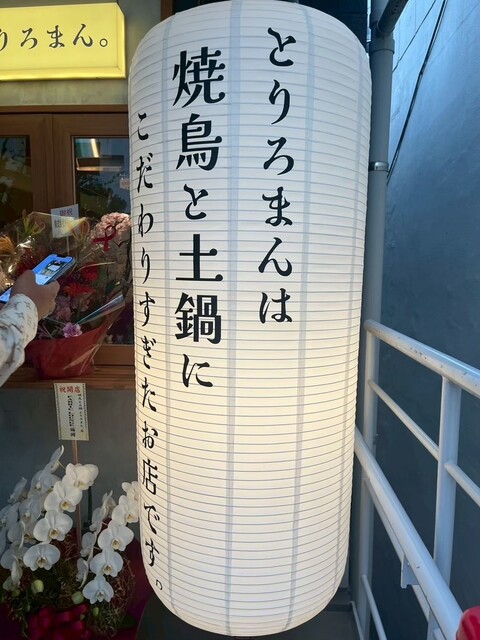 りろまん。
とりろまんは
焼鳥と土鍋に
こだわりすぎたお店です。
祝開店